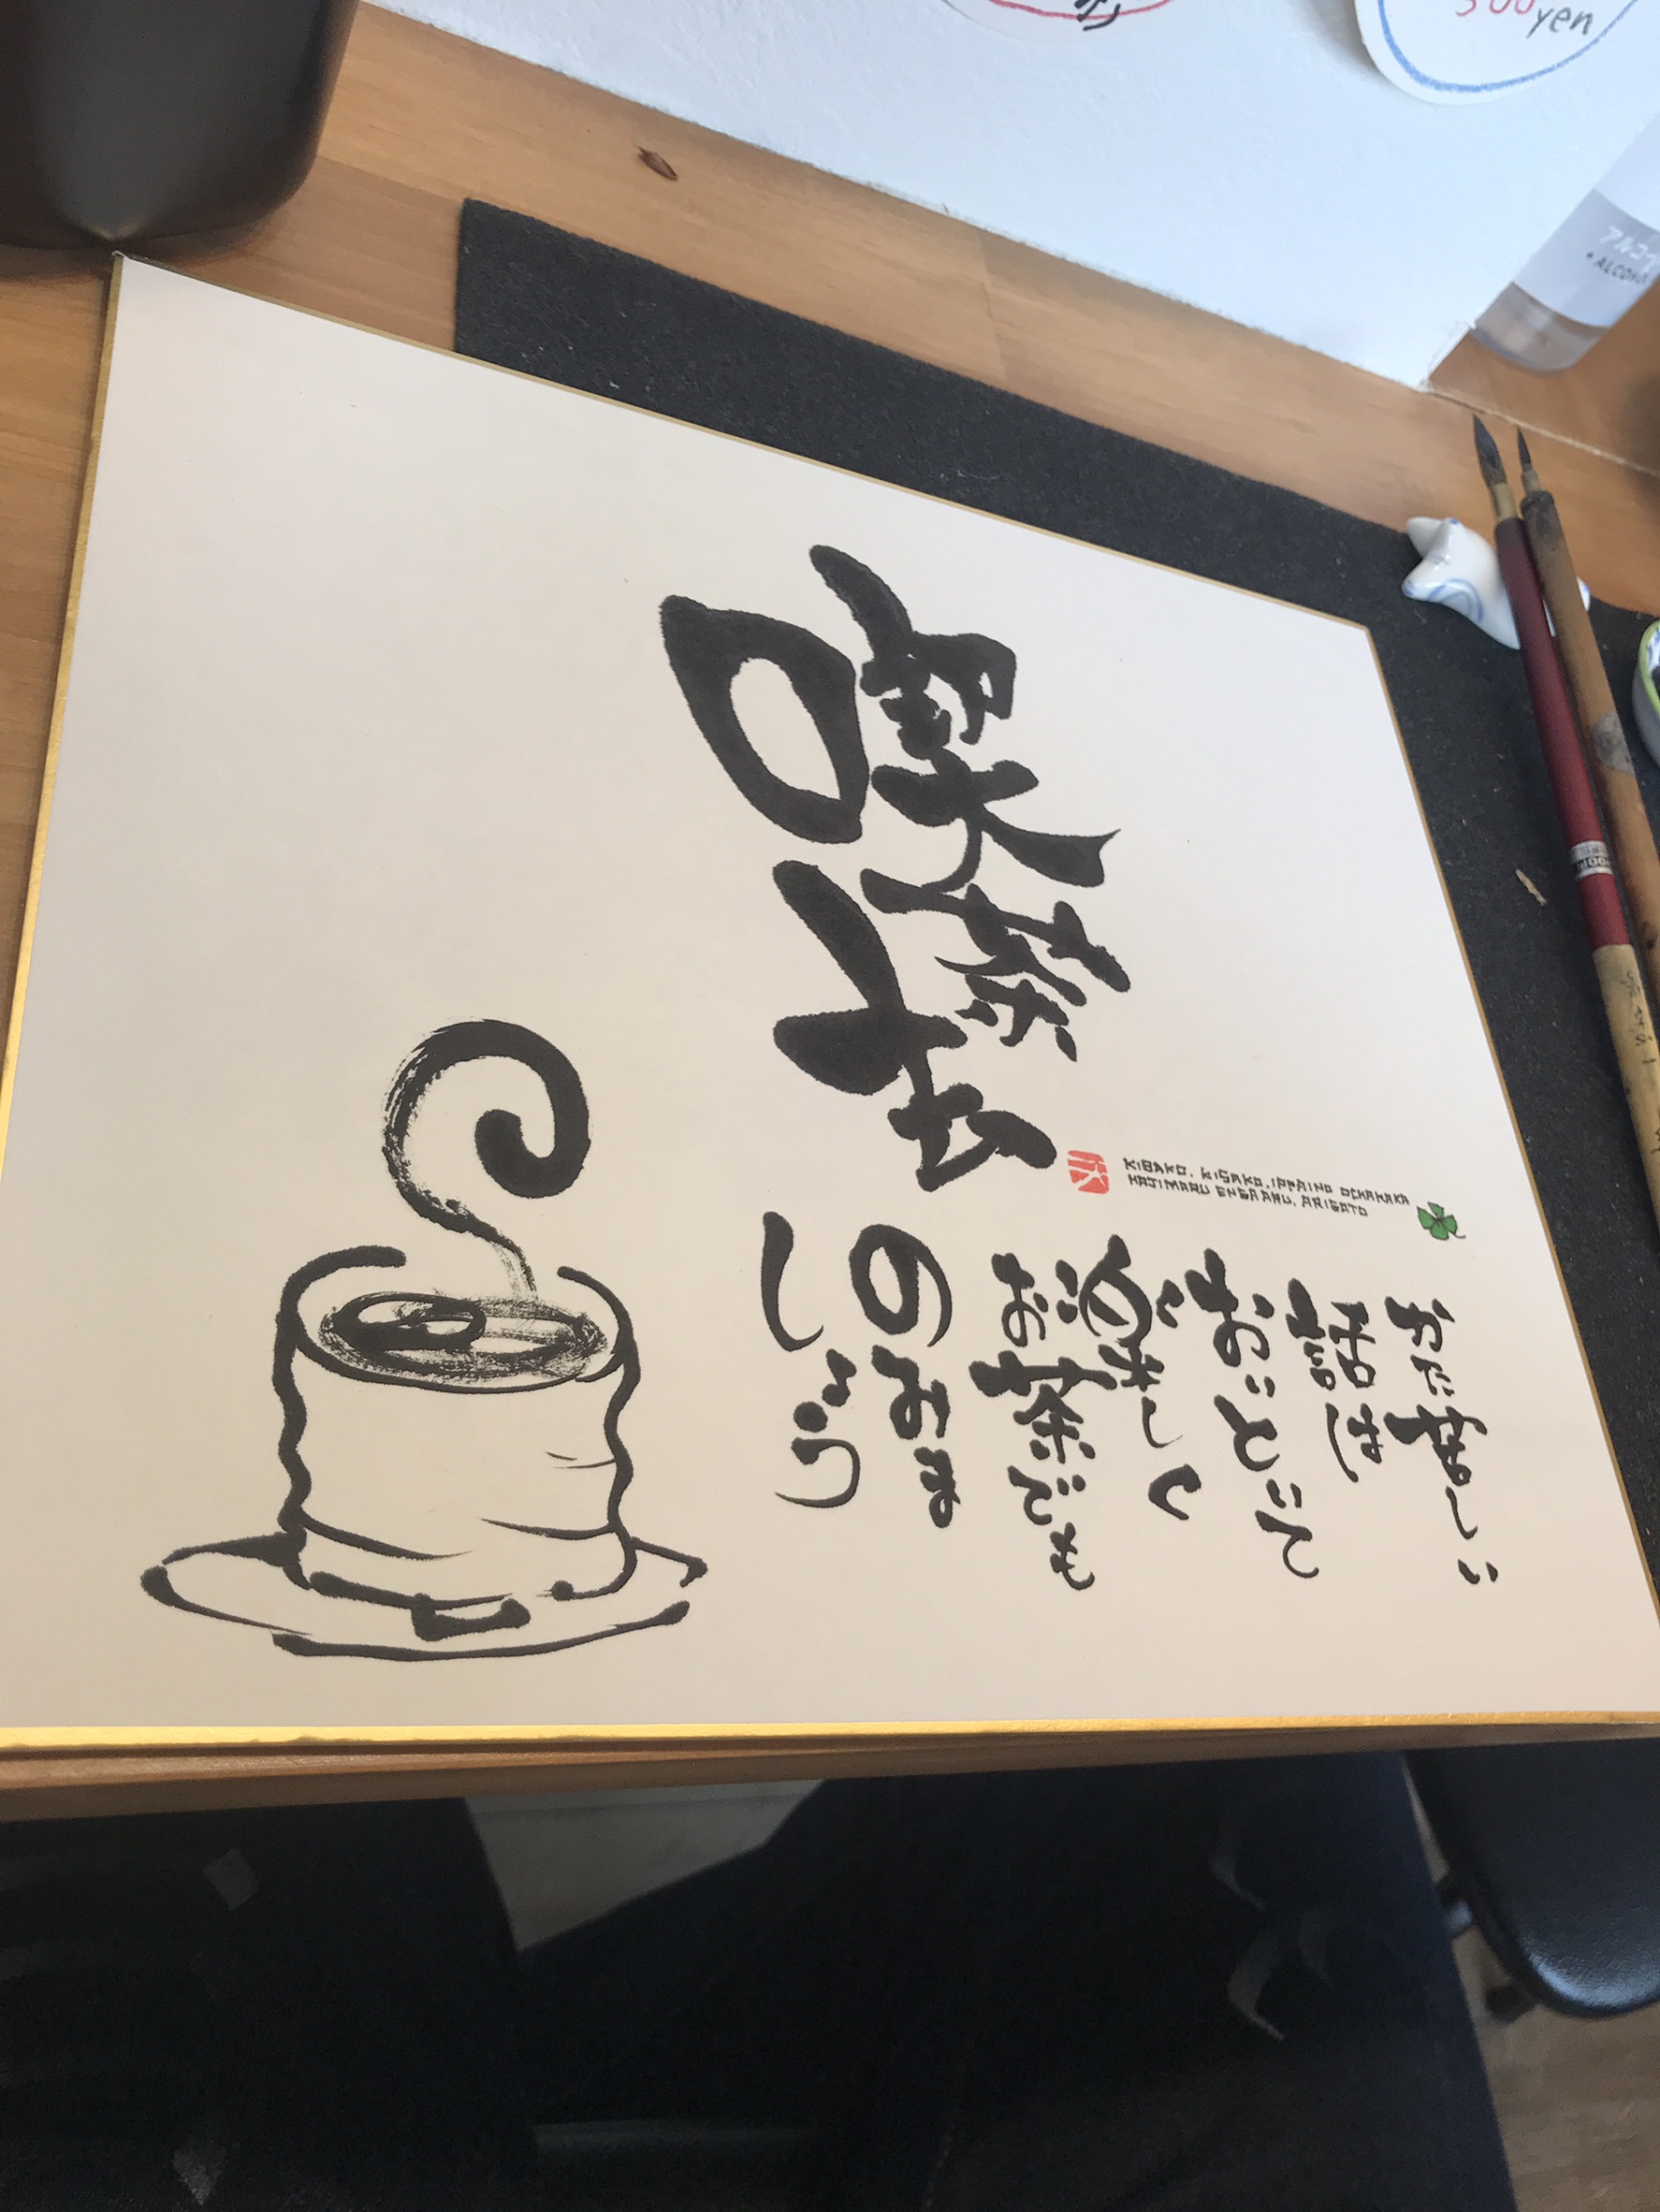 yen
アルコー
+ALCOHO
喫茶去
KISAKO. KISAKO. IPPAINO OCHAKARA
HAJIMARU ENGAARU. ARIGATO
かた苦しい
話は
おいといて
楽しく
お茶でも
のみま
しょう